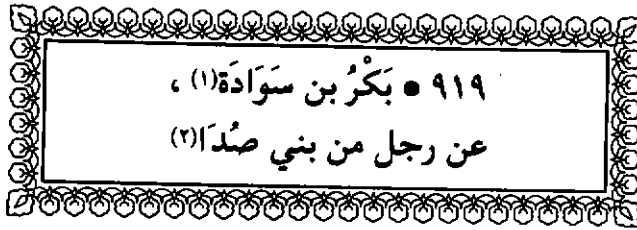 ٩١٩ • بَكْرُ بن سَوَادَة(١) ،
عن رجل من بني صُدَا(٢)